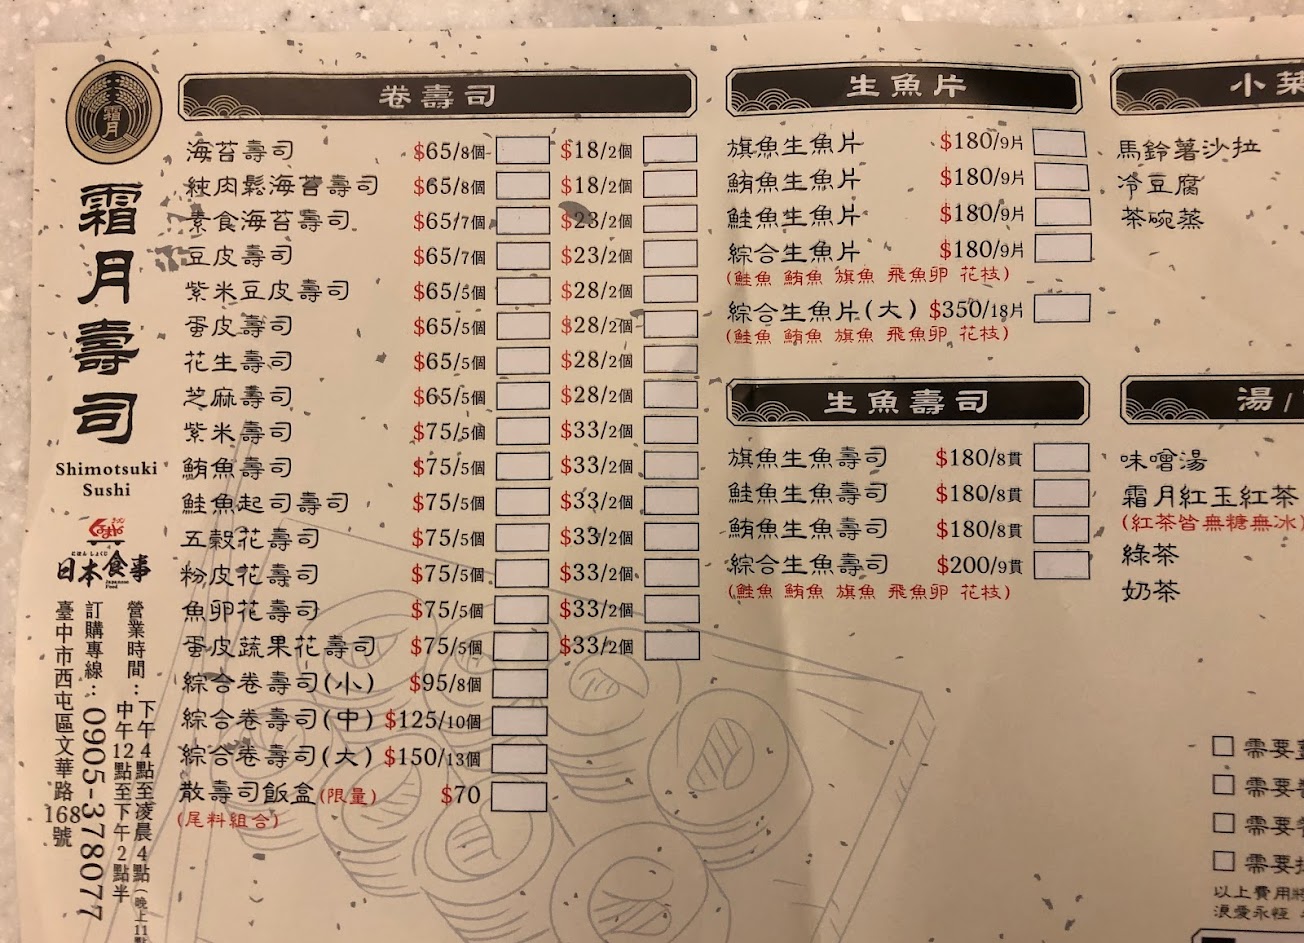 霜月
霜月壽司
Shimotsuki
Sushi
日本食事
にほんしょくじ
Japanese
Food
營業時間：下午4點至凌晨4點(晚上11點
中午12點至下午2點半
訂購專線：0905-378077
臺中市西屯區文華路168號
卷壽司
海苔壽司 $65/8個 $18/2個
純肉鬆海苔壽司 $65/8個 $18/2個
素食海苔壽司 $65/7個 $23/2個
豆皮壽司 $65/7個 $23/2個
紫米豆皮壽司 $65/5個 $28/2個
蛋皮壽司 $65/5個 $28/2個
花生壽司 $65/5個 $28/2個
芝麻壽司 $65/5個 $28/2個
紫米壽司 $75/5個 $33/2個
鮪魚壽司 $75/5個 $33/2個
鮭魚起司壽司 $75/5個 $33/2個
五穀花壽司 $75/5個 $33/2個
粉皮花壽司 $75/5個 $33/2個
魚卵花壽司 $75/5個 $33/2個
蛋皮蔬果花壽司 $75/5個 $33/2個
綜合卷壽司(小) $95/8個
綜合卷壽司(中) $125/10個
綜合卷壽司(大) $150/13個
散壽司飯盒(限量) $70
(尾料組合)
生魚片
旗魚生魚片 $180/9片
鮪魚生魚片 $180/9片
鮭魚生魚片 $180/9片
綜合生魚片 $180/9片
(鮭魚 鮪魚 旗魚 飛魚卵 花枝)
綜合生魚片(大) $350/18片
(鮭魚 鮪魚 旗魚 飛魚卵 花枝)
生魚壽司
旗魚生魚壽司 $180/8貫
鮭魚生魚壽司 $180/8貫
鮪魚生魚壽司 $180/8貫
綜合生魚壽司 $200/9貫
(鮭魚 鮪魚 旗魚 飛魚卵 花枝)
小菜
馬鈴薯沙拉
冷豆腐
茶碗蒸
湯/
味噌湯
霜月紅玉紅茶
(紅茶皆無糖無冰)
綠茶
奶茶
需要
需要
需要
需要
以上費用將
浪愛永恆